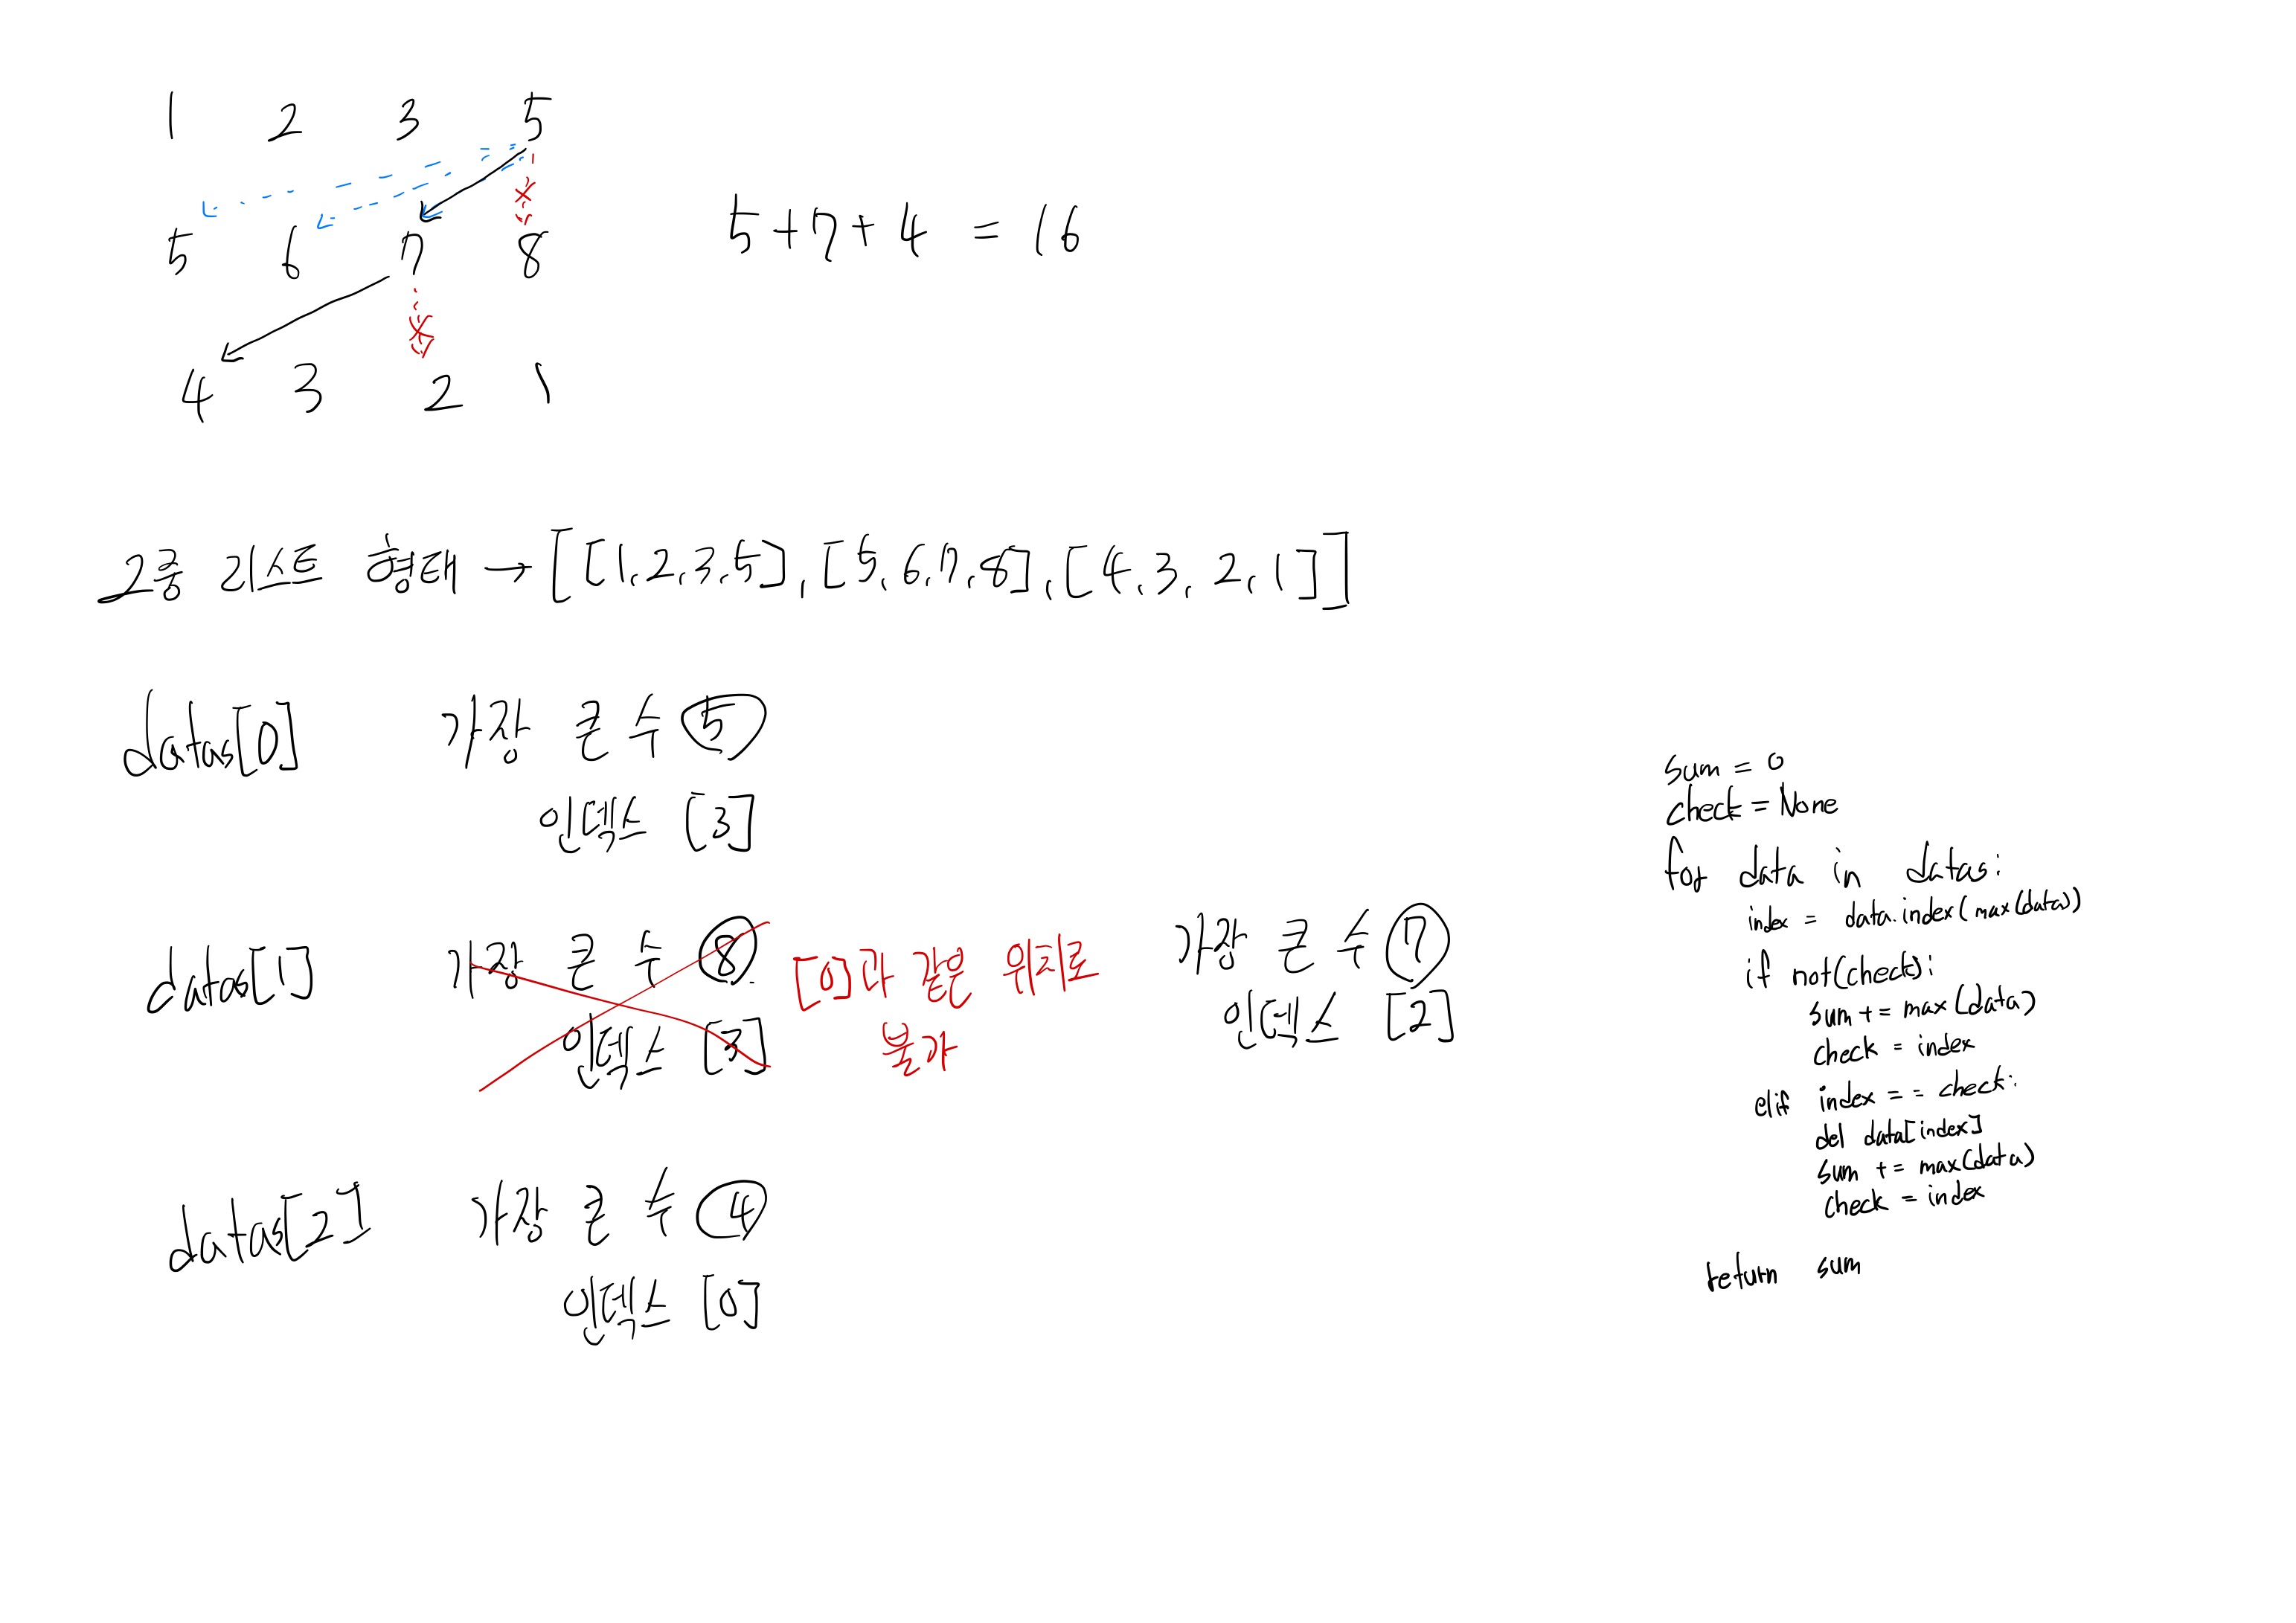 1 2 3 5
5 6 7 8
4 3 2 1
5+7+4 = 16
2중 리스트 형태 → [[1,2,3,5],[5,6,7,8],[4,3,2,1]]
datas[0] 가장 큰 수 5
인덱스 [3]
datas[1] 가장 큰 수 8
인덱스 [3]
[0]과 같은 위치로
불가
가장 큰 수 7
인덱스 [2]
datas[2] 가장 큰 수 4
인덱스 [0]
sum = 0
check = None
for data in datas:
index = data.index(max(data))
if not(check):
sum += max(data)
check = index
elif index == check:
del data[index]
sum += max(data)
check = index
return sum